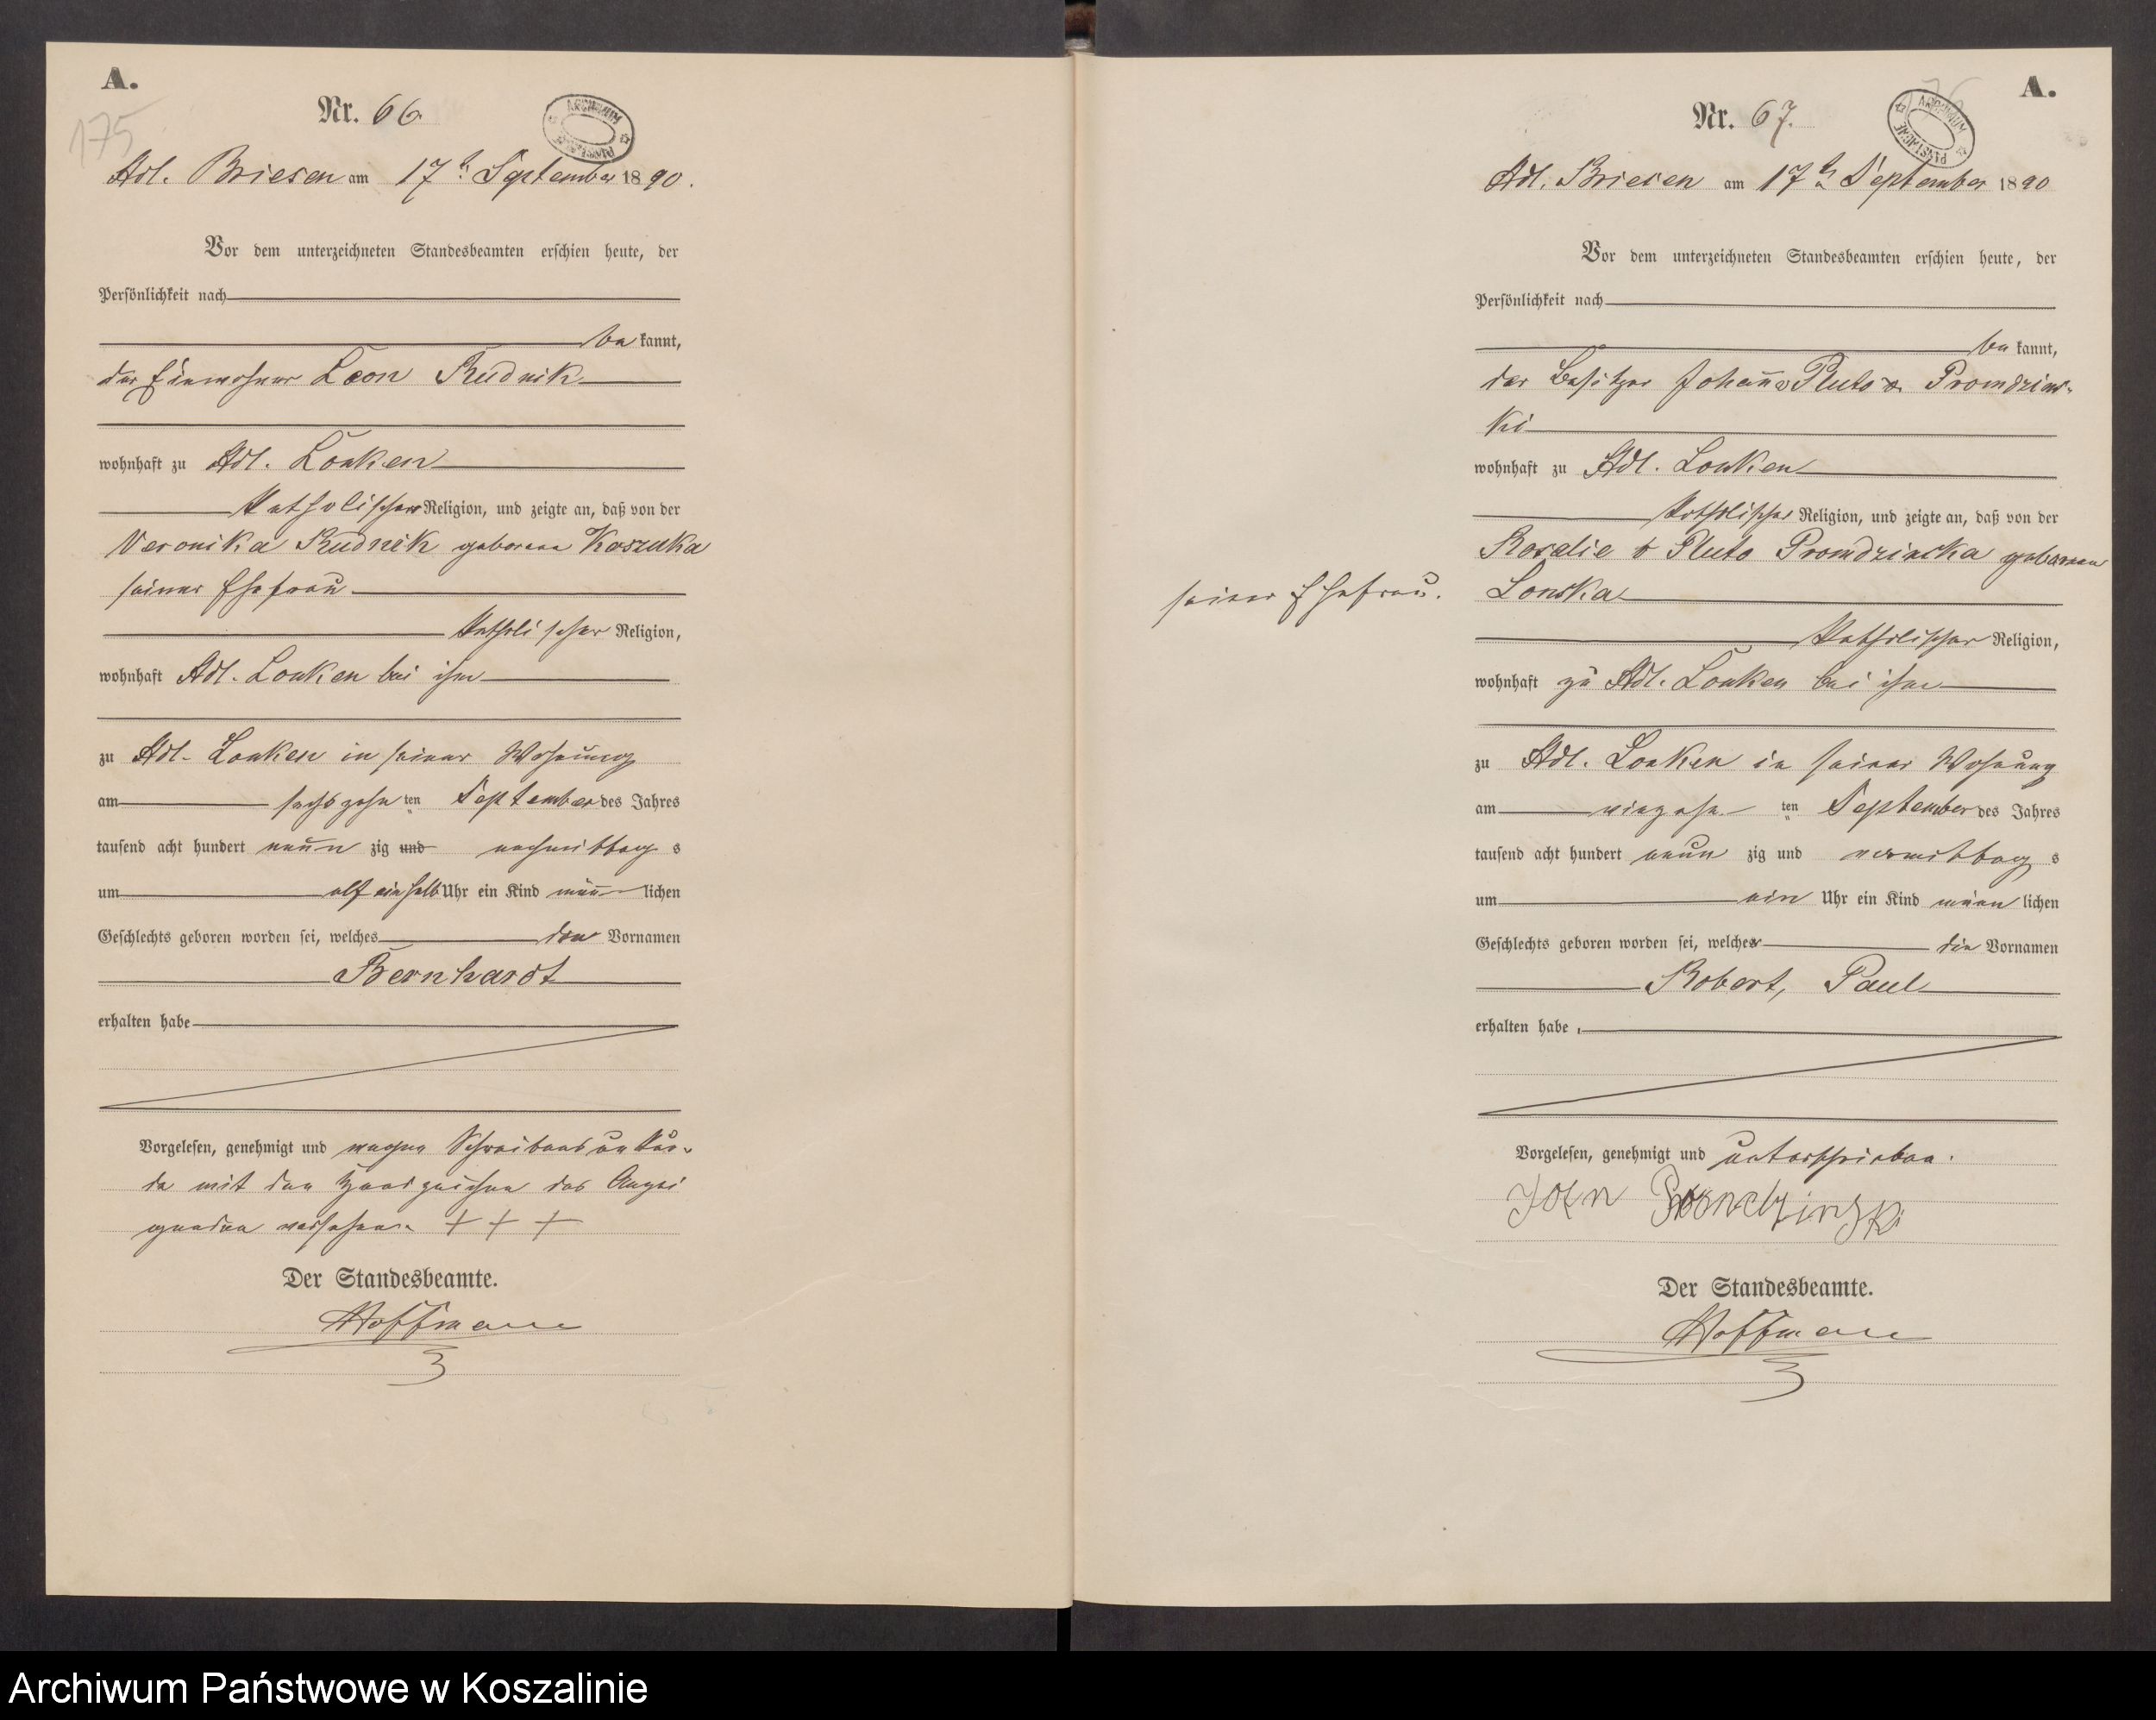 A.
175
Nr. 66
Adl. Briesen am 17t September 1890.
Vor dem unterzeichneten Standesbeamten erschien heute, der
Persönlichkeit nach
be kannt,
der Einwohner Leon Rudnik
wohnhaft zu Adl. Lonken
katholischer Religion, und zeigte an, daß von der
Veronika Rudnik geborene Koszuka
seiner Ehefrau
katholischer Religion,
wohnhaft Adl. Lonken bei ihm
zu Adl. Lonken in seiner Wohnung
am sechszehn ten September des Jahres
tausend acht hundert neun zig und nachmittag s
um elf ein halb Uhr ein Kind männ lichen
Geschlechts geboren worden sei, welches den Vornamen
Bernhardt
erhalten habe
Vorgelesen, genehmigt und wegen Schreibensunkun-
de mit den Handzeichen des Anzei
genden versehen. + + +
Der Standesbeamte.
Hoffmann
A.
Nr. 67.
ARCHIWUM PAŃSTWOWE
Adl. Briesen am 17t September 1890
Vor dem unterzeichneten Standesbeamten erschien heute, der
Persönlichkeit nach
be kannt,
der Besitzer Johann v Pluto v. Prondzins-
ki
wohnhaft zu Adl. Lonken
katholischer Religion, und zeigte an, daß von der
Rosalie v Pluto Prondzinska geborenen
seiner Ehefrau. Lonska
katholischer Religion,
wohnhaft zu Adl. Lonken bei ihm
zu Adl. Lonken in seiner Wohnung
am vierzehn ten September des Jahres
tausend acht hundert neun zig und vormittag s
um ein Uhr ein Kind männ lichen
Geschlechts geboren worden sei, welches die Vornamen
Robert, Paul
erhalten habe,
Vorgelesen, genehmigt und unterschrieben.
Prondzinski
Der Standesbeamte.
Hoffmann
Archiwum Państwowe w Koszalinie